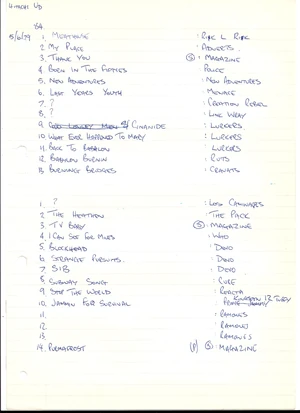 HITACHI UD
5/6/79
1. MEATHOOK : RAPE L RAPE
2 MY PLACE : ADVERTS
3. THANK YOU (S) : MAGAZINE
4. BORN IN THE FIFTIES POLICE
5. NEW ADVENTURES : NEW ADVENTURES
6. LAST YEARS YOUTH : MENACE
7. ? : CREATION REBEL
8. ? : LINK WRAY
9 CYANIDE : LURKERS
10. WHAT EVER HAPPENED TO MARY : LURKERS
11. BACK TO BABALON : LURKERS
12. BABALON BURNIN : RUTS
13. BURNING BRIDGES : CRAVATS
1. ?
2. THE HEATHEN : THE PACK
3. TV BABY (S) : MAGAZINE
4. I CAN SEE FOR MILES : WHO
5. BLOCKHEAD : DEVO
6. STRANGE PURSUITS. : DEVO
7. SIB : DEVO
8. SUBWAY SONG : CURE
9. STOP THE WORLD : REACTA
10. JAMMIN FOR SURVIVAL
11. : RAMONES
12. : RAMONES
13. : RAMONES
14. PERMAFROST (P) (S) : MAGAZINE